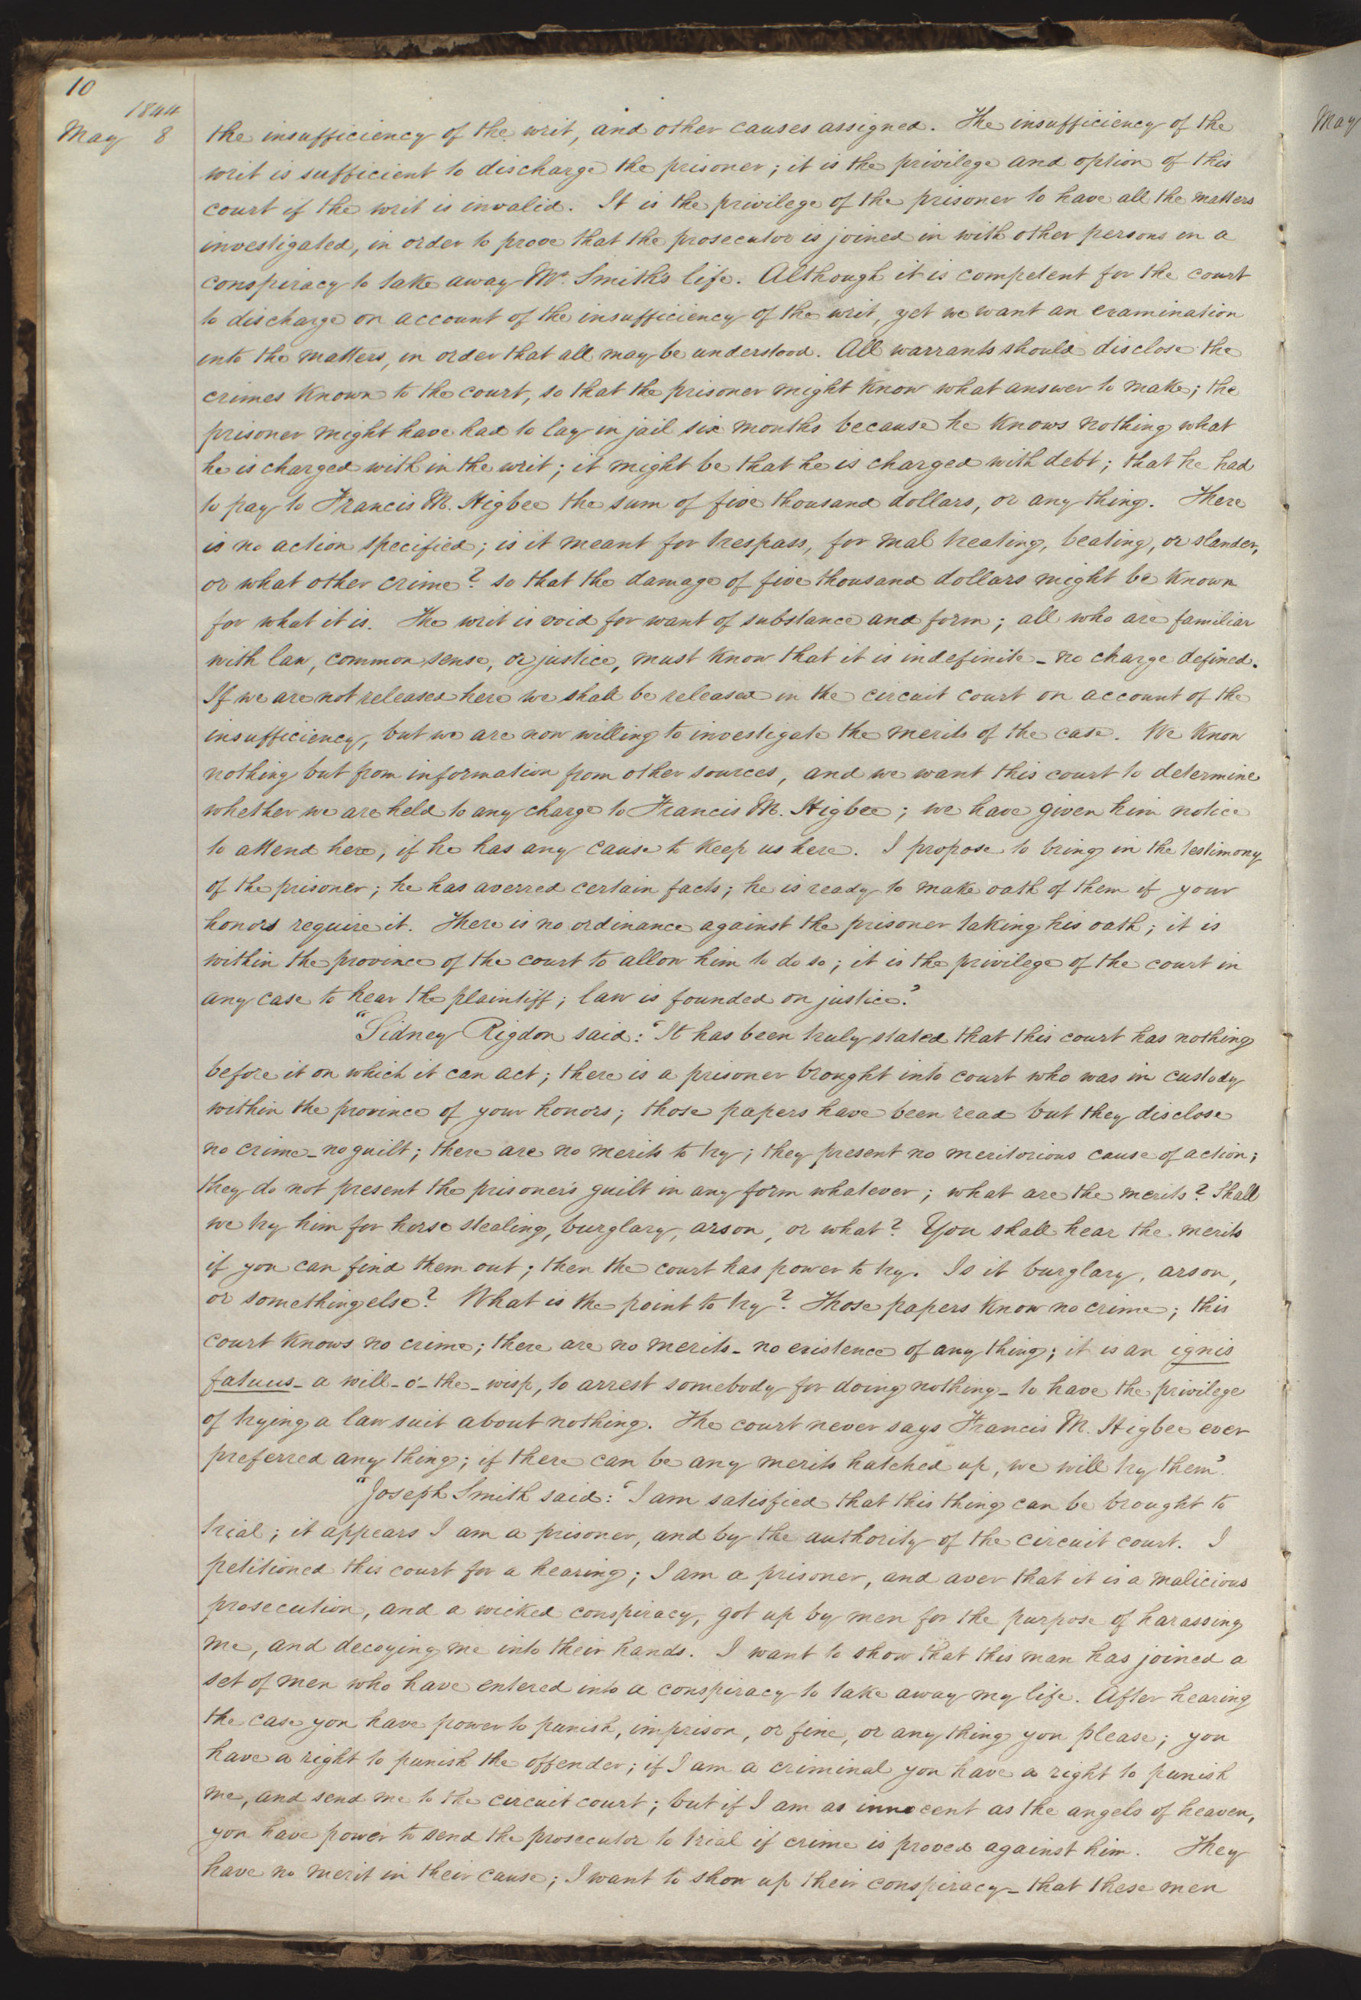 10
1844
May 8
the insufficiency of the writ, and other causes assigned. The insufficiency of the
writ is sufficient to discharge the prisoner; it is the privilege and option of this
court if the writ is invalid. It is the privilege of the prisoner to have all the matters
investigated, in order to prove that the prosecutor is joined in with other persons in a
conspiracy to take away Mr. Smith's life. Although it is competent for the court
to discharge on account of the insufficiency of the writ, yet we want an examination
into the matters, in order that all may be understood. All warrants should disclose the
crimes known to the court, so that the prisoner might know what answer to make; the
prisoner might have had to lay in jail six months because he knows nothing what
he is charged with in the writ; it might be that he is charged with debt; that he had
to pay to Francis M. Higbee the sum of five thousand dollars, or any thing. There
is no action specified; is it meant for trespass, for mal treating, beating, or slander,
or what other crime? so that the damage of five thousand dollars might be known
for what it is. The writ is void for want of substance and form; all who are familiar
with law, common sense, or justice, must know that it is indefinite - no charge defined.
If we are not released here we shall be released in the circuit court on account of the
insufficiency, but we are now willing to investigate the merits of the case. We know
nothing but from information from other sources, and we want this court to determine
whether we are held to any charge to Francis M. Higbee; we have given him notice
to attend here, if he has any cause to keep us here. I propose to bring in the testimony
of the prisoner; he has averred certain facts; he is ready to make oath of them if your
honors require it. There is no ordinance against the prisoner taking his oath; it is
within the province of the court to allow him to do so; it is the privilege of the court in
any case to hear the plaintiff; law is founded on justice.'
"Sidney Rigdon said: 'It has been truly stated that this court has nothing
before it on which it can act; there is a prisoner brought into court who was in custody
within the province of your honors; those papers have been read but they disclose
no crime - no guilt; there are no merits to try; they present no meritorious cause of action;
they do not present the prisoner's guilt in any form whatever; what are the merits? Shall
we try him for horse stealing, burglary, arson, or what? You shall hear the merits
if you can find them out; then the court has power to try. Is it burglary, arson,
or something else? What is the point to try? Those papers know no crime; this
court knows no crime; there are no merits - no existence of any thing; it is an ignis
fatuus - a will - o' - the - wisp, to arrest somebody for doing nothing - to have the privilege
of trying a law suit about nothing. The court never says Francis M. Higbee ever
preferred any thing; if there can be any merits hatched up, we will try them'.
"Joseph Smith said: 'I am satisfied that this thing can be brought to
trial; it appears I am a prisoner, and by the authority of the circuit court. I
petitioned this court for a hearing; I am a prisoner, and aver that it is a malicious
prosecution, and a wicked conspiracy, got up by men for the purpose of harassing
me, and decoying me into their hands. I want to show that this man has joined a
set of men who have entered into a conspiracy to take away my life. After hearing
the case you have power to punish, imprison, or fine, or any thing you please; you
have a right to punish the offender; if I am a criminal you have a right to punish
me, and send me to the circuit court; but if I am as innocent as the angels of heaven,
you have power to send the prosecutor to trial if crime is proved against him. They
have no merit in their cause; I want to show up their conspiracy - that these men
May